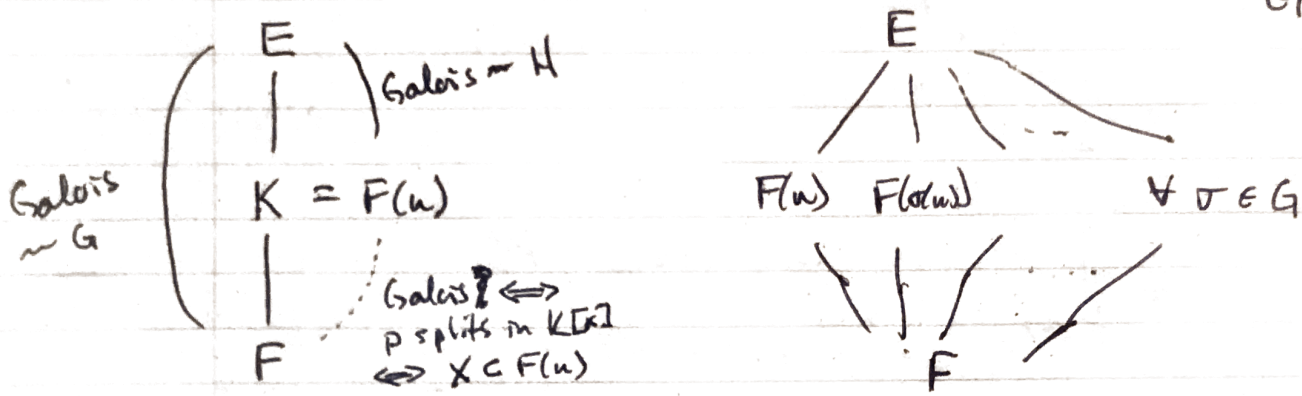 E
Galois ~ H
Galois
~ G
K = F(u)
Galois? ⟺
p splits in K[x]
⟺ X ⊂ F(u)
F
E
F(u) F(σ(u)) ∀ σ ∈ G
F